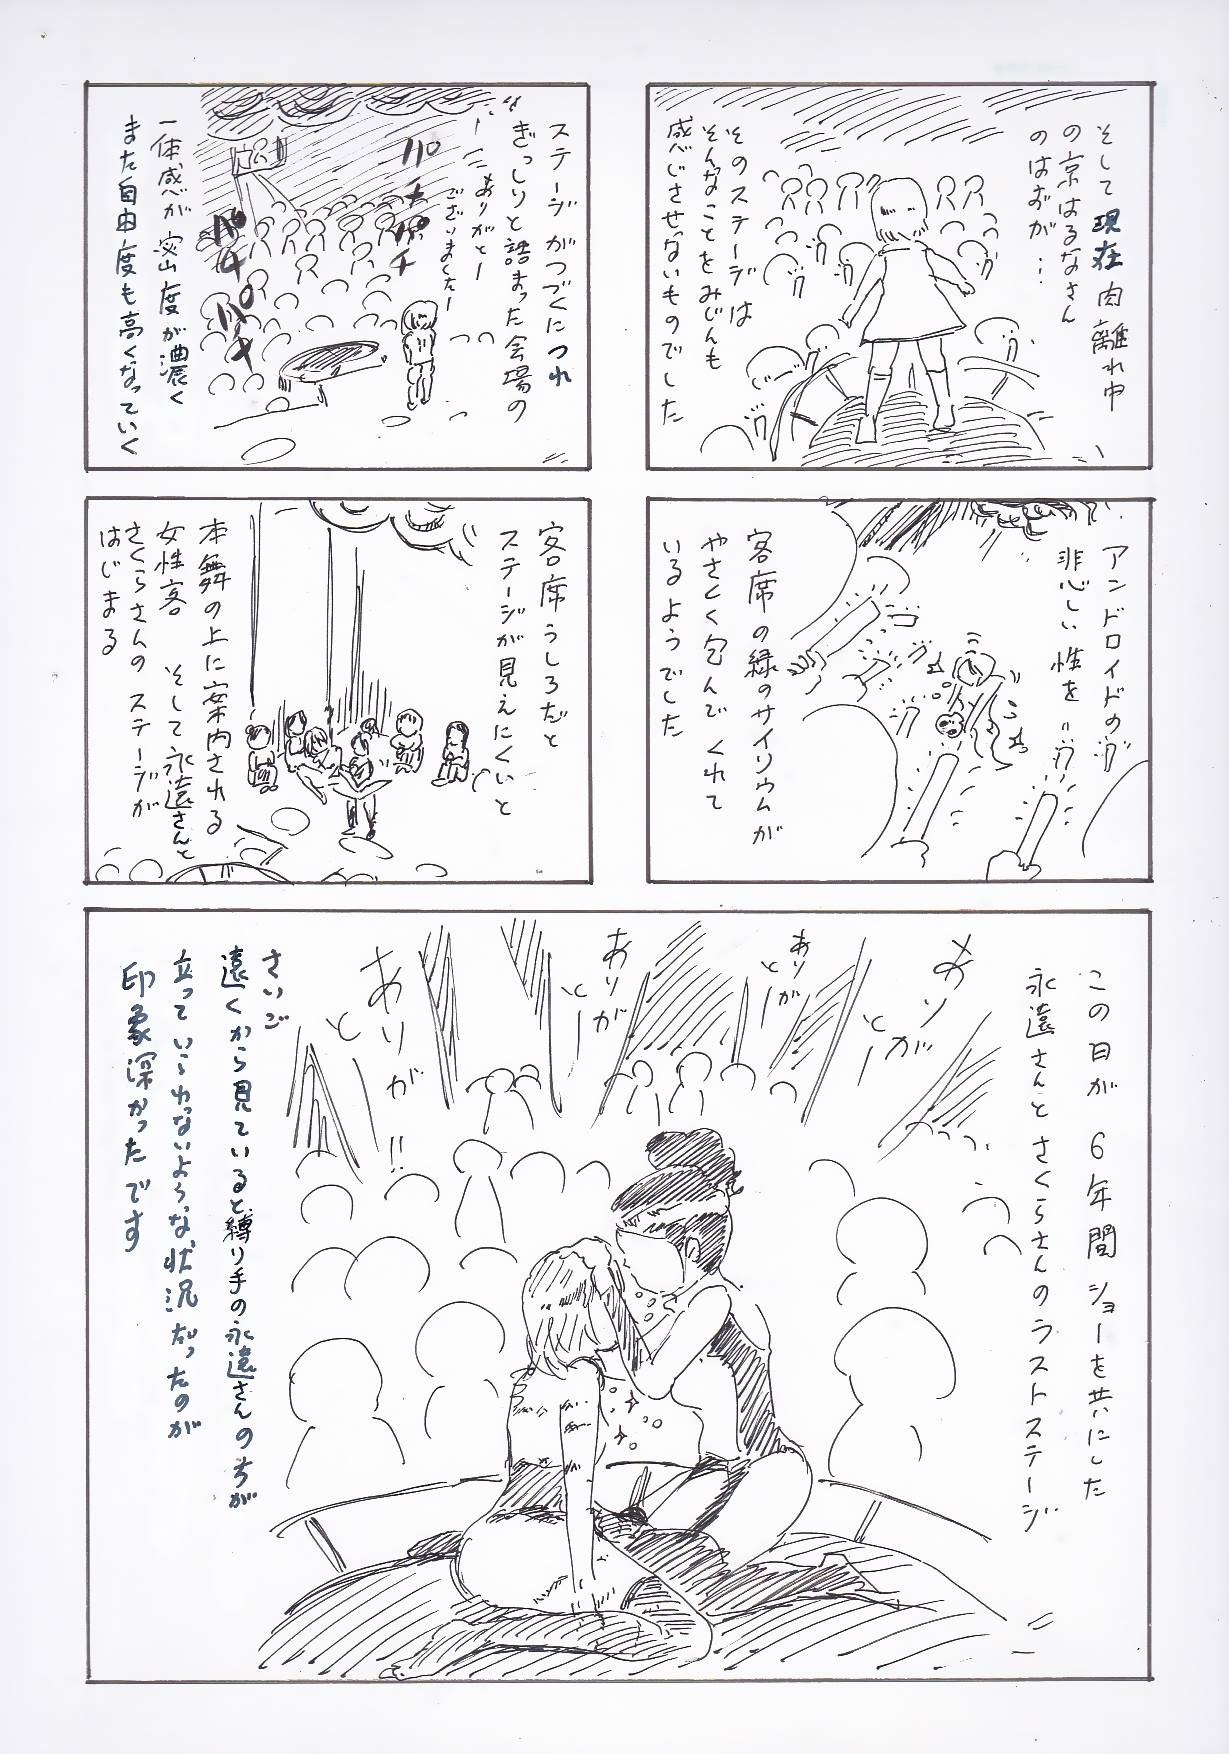 そして現在肉離れ中
の京はるなさん
のはずが…
そのステージは
そんなことをみじんも
感じさせないものでした
ステージがつづくにつれ
ぎっしりと詰まった会場の
ありがとー
ございましたー
パチパチ
パチパチ
一体感が密度が濃く
また自由度も高くなっていく
アンドロイドの
悲しい性を
客席の緑のサイリウムが
やさしく包んでくれて
いるようでした
客席うしろだと
ステージが見えにくいと
本舞の上に案内される
女性客 そして永遠さんと
さくらさんのステージが
はじまる
この日が6年間ショーを共にした
永遠さんとさくらさんのラストステージ
ありが
とー
ありが
とー
ありが
とー
ありが!!
とー
さいご
遠くから見ていると縛り手の永遠さんの方が
立っていられないような状況だったのが
印象深かったです